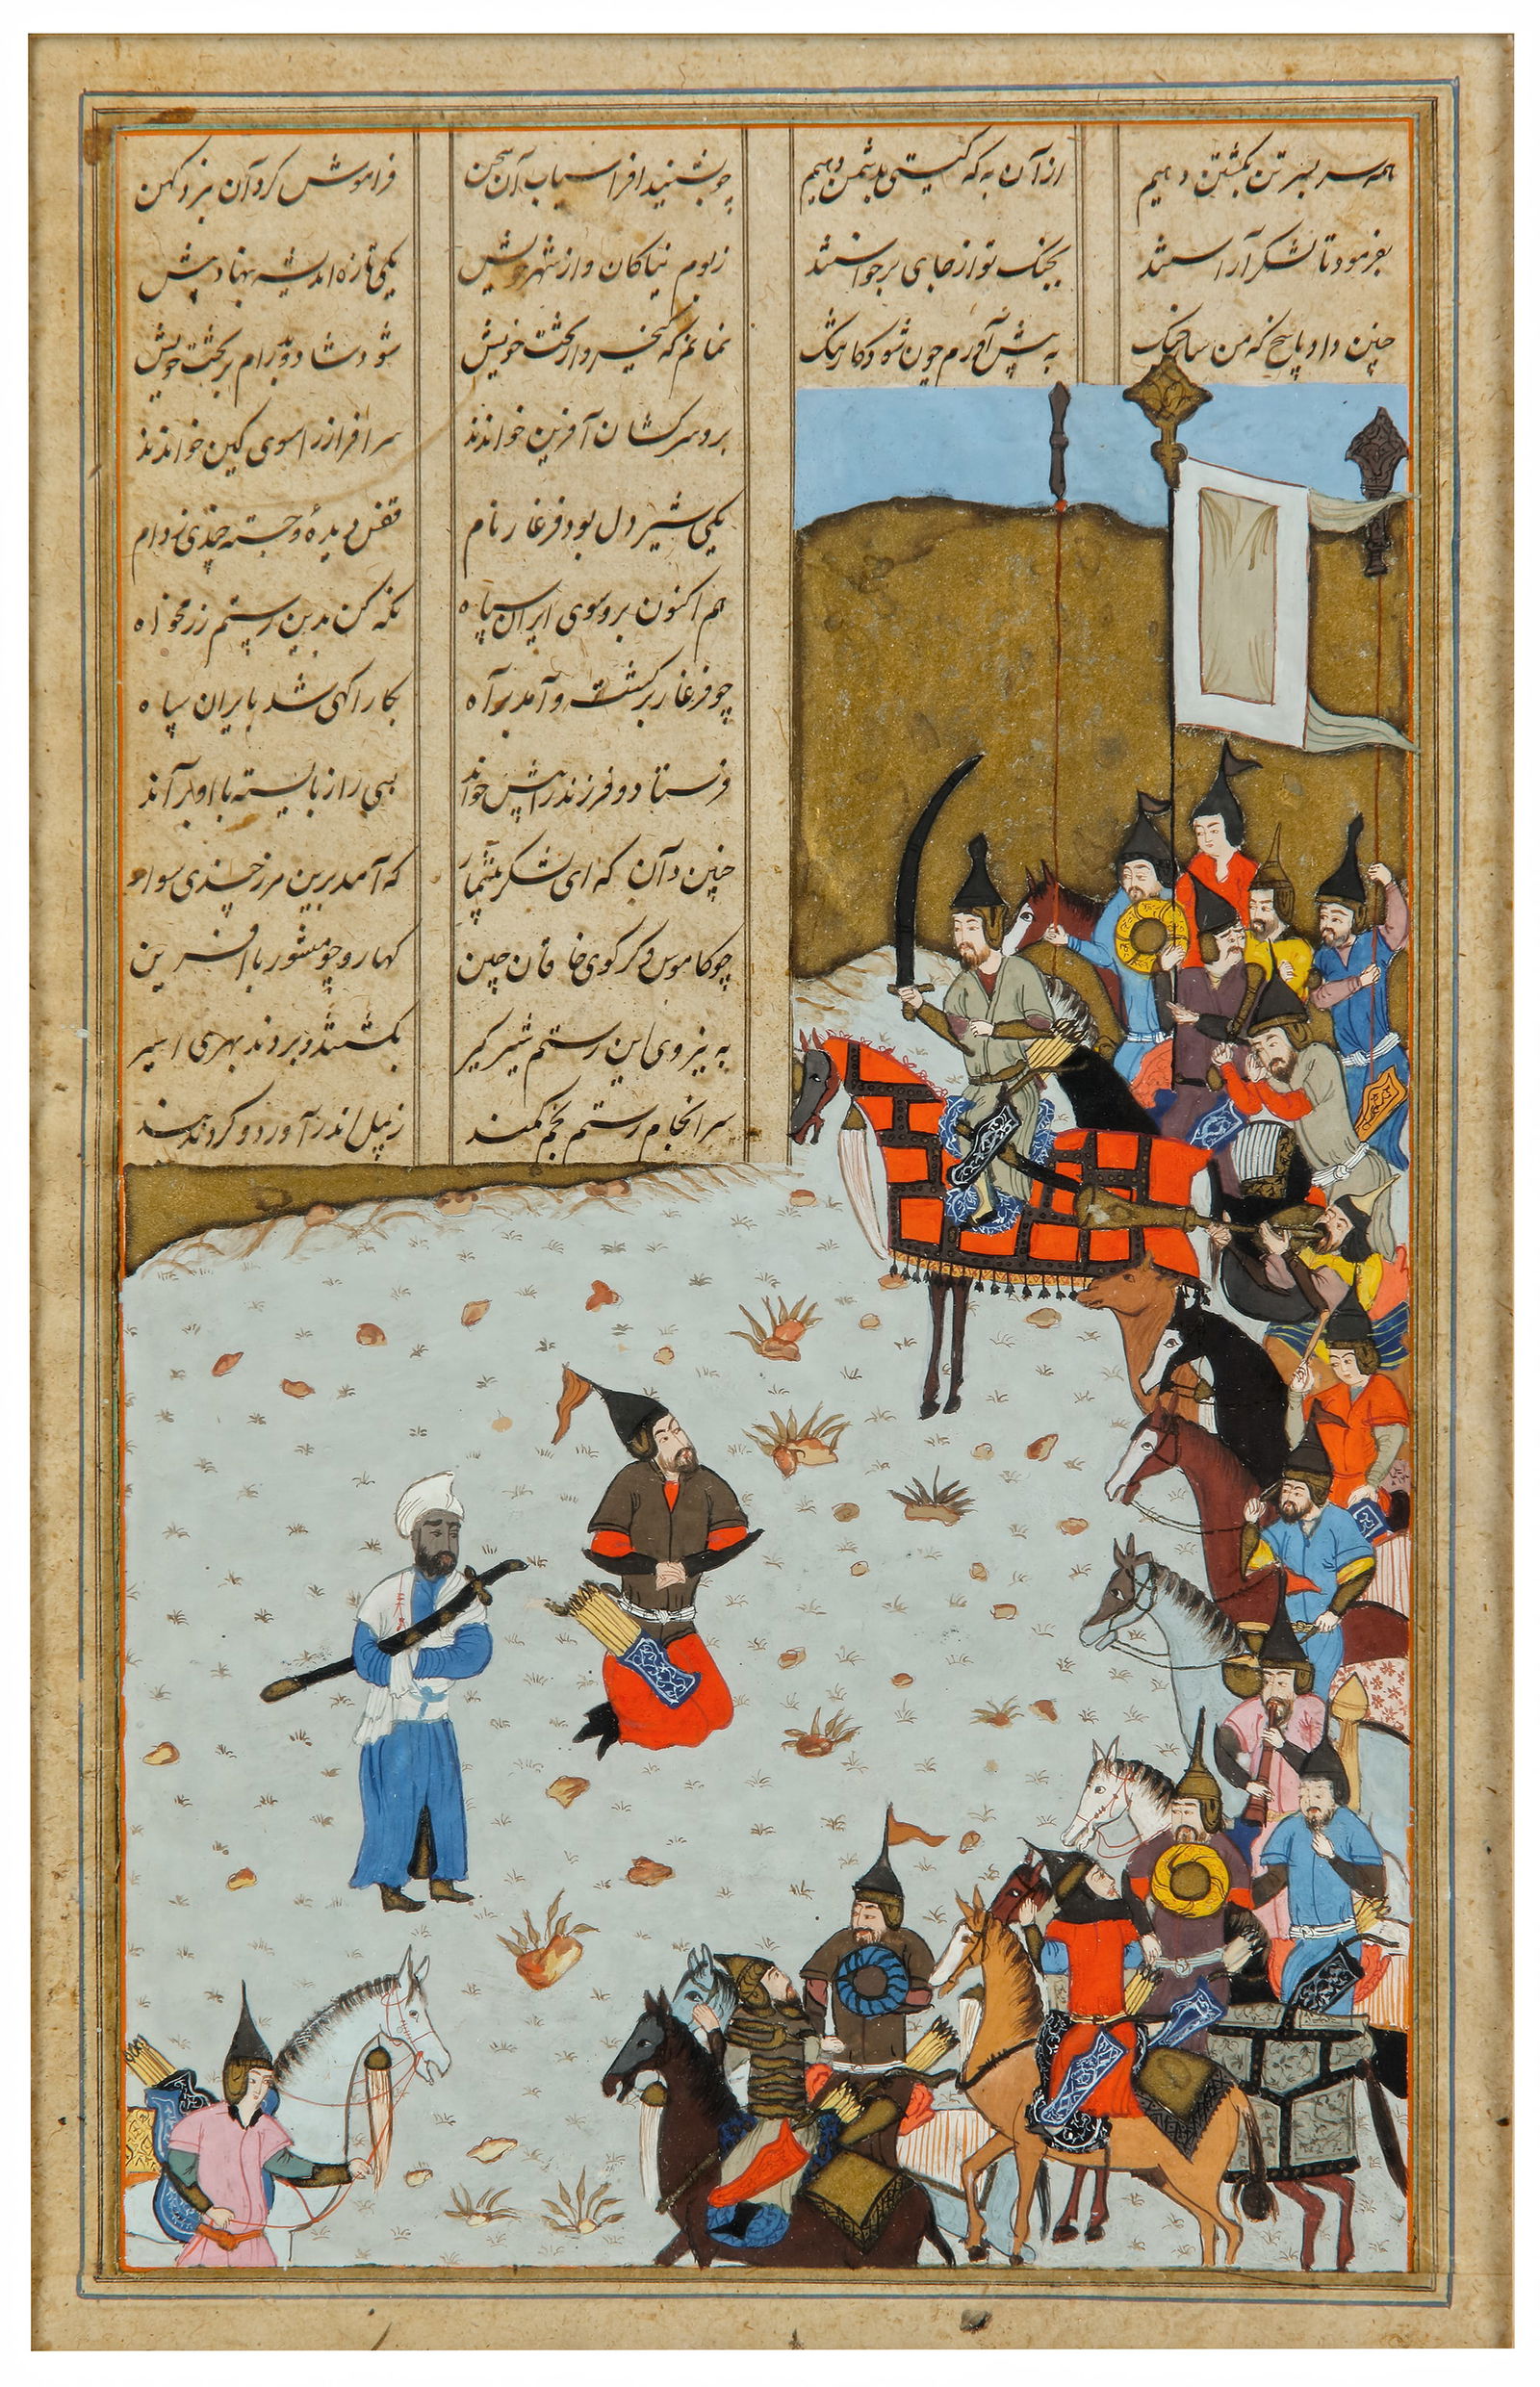 همه سر بسر تن بکشتن دهیم از آن به که گیتی بدشمن دهیم چو بشنید افراسیاب آن سخن فراموش کرد آن نبرد کهن
بفرمود تا لشکر آراستند بجنگ نو از جای برخواستند ز بوم نیاکان و از شهر خویش یکی تازه اندیشه بنهاد پیش
چنین داد پاسخ که من ساز جنگ به پیش آورم چون شود کار تنگ نمانم که کیخسرو از تخت خویش شود شاد و پدرام بر بخت خویش
برو سرکشان آفرین خواندند سرافراز را سوی کین خواندند
یکی شیر دل بود فرغار نام قفس دیده و جسته چندی ز دام
هم اکنون برو سوی ایران سپاه نگه کن بدین رستم رزمخواه
چو فرغار برگشت و آمد براه بکار اگهی شد بایران سپاه
فرستاد و فرزند را پیش خواند بسی راز بایسته با او براند
چنین که ای لشکر بیشمار که آمد برین مرز چندی سوار
چو کاموس و گرگوی خاقان چین کهار و چو منشور با آفرین
به نیروی این رستم شیر گیر بکشتند و بردند بهری اسیر
سرانجام رستم بخم کمند ز پیل اندر آورد و کرد